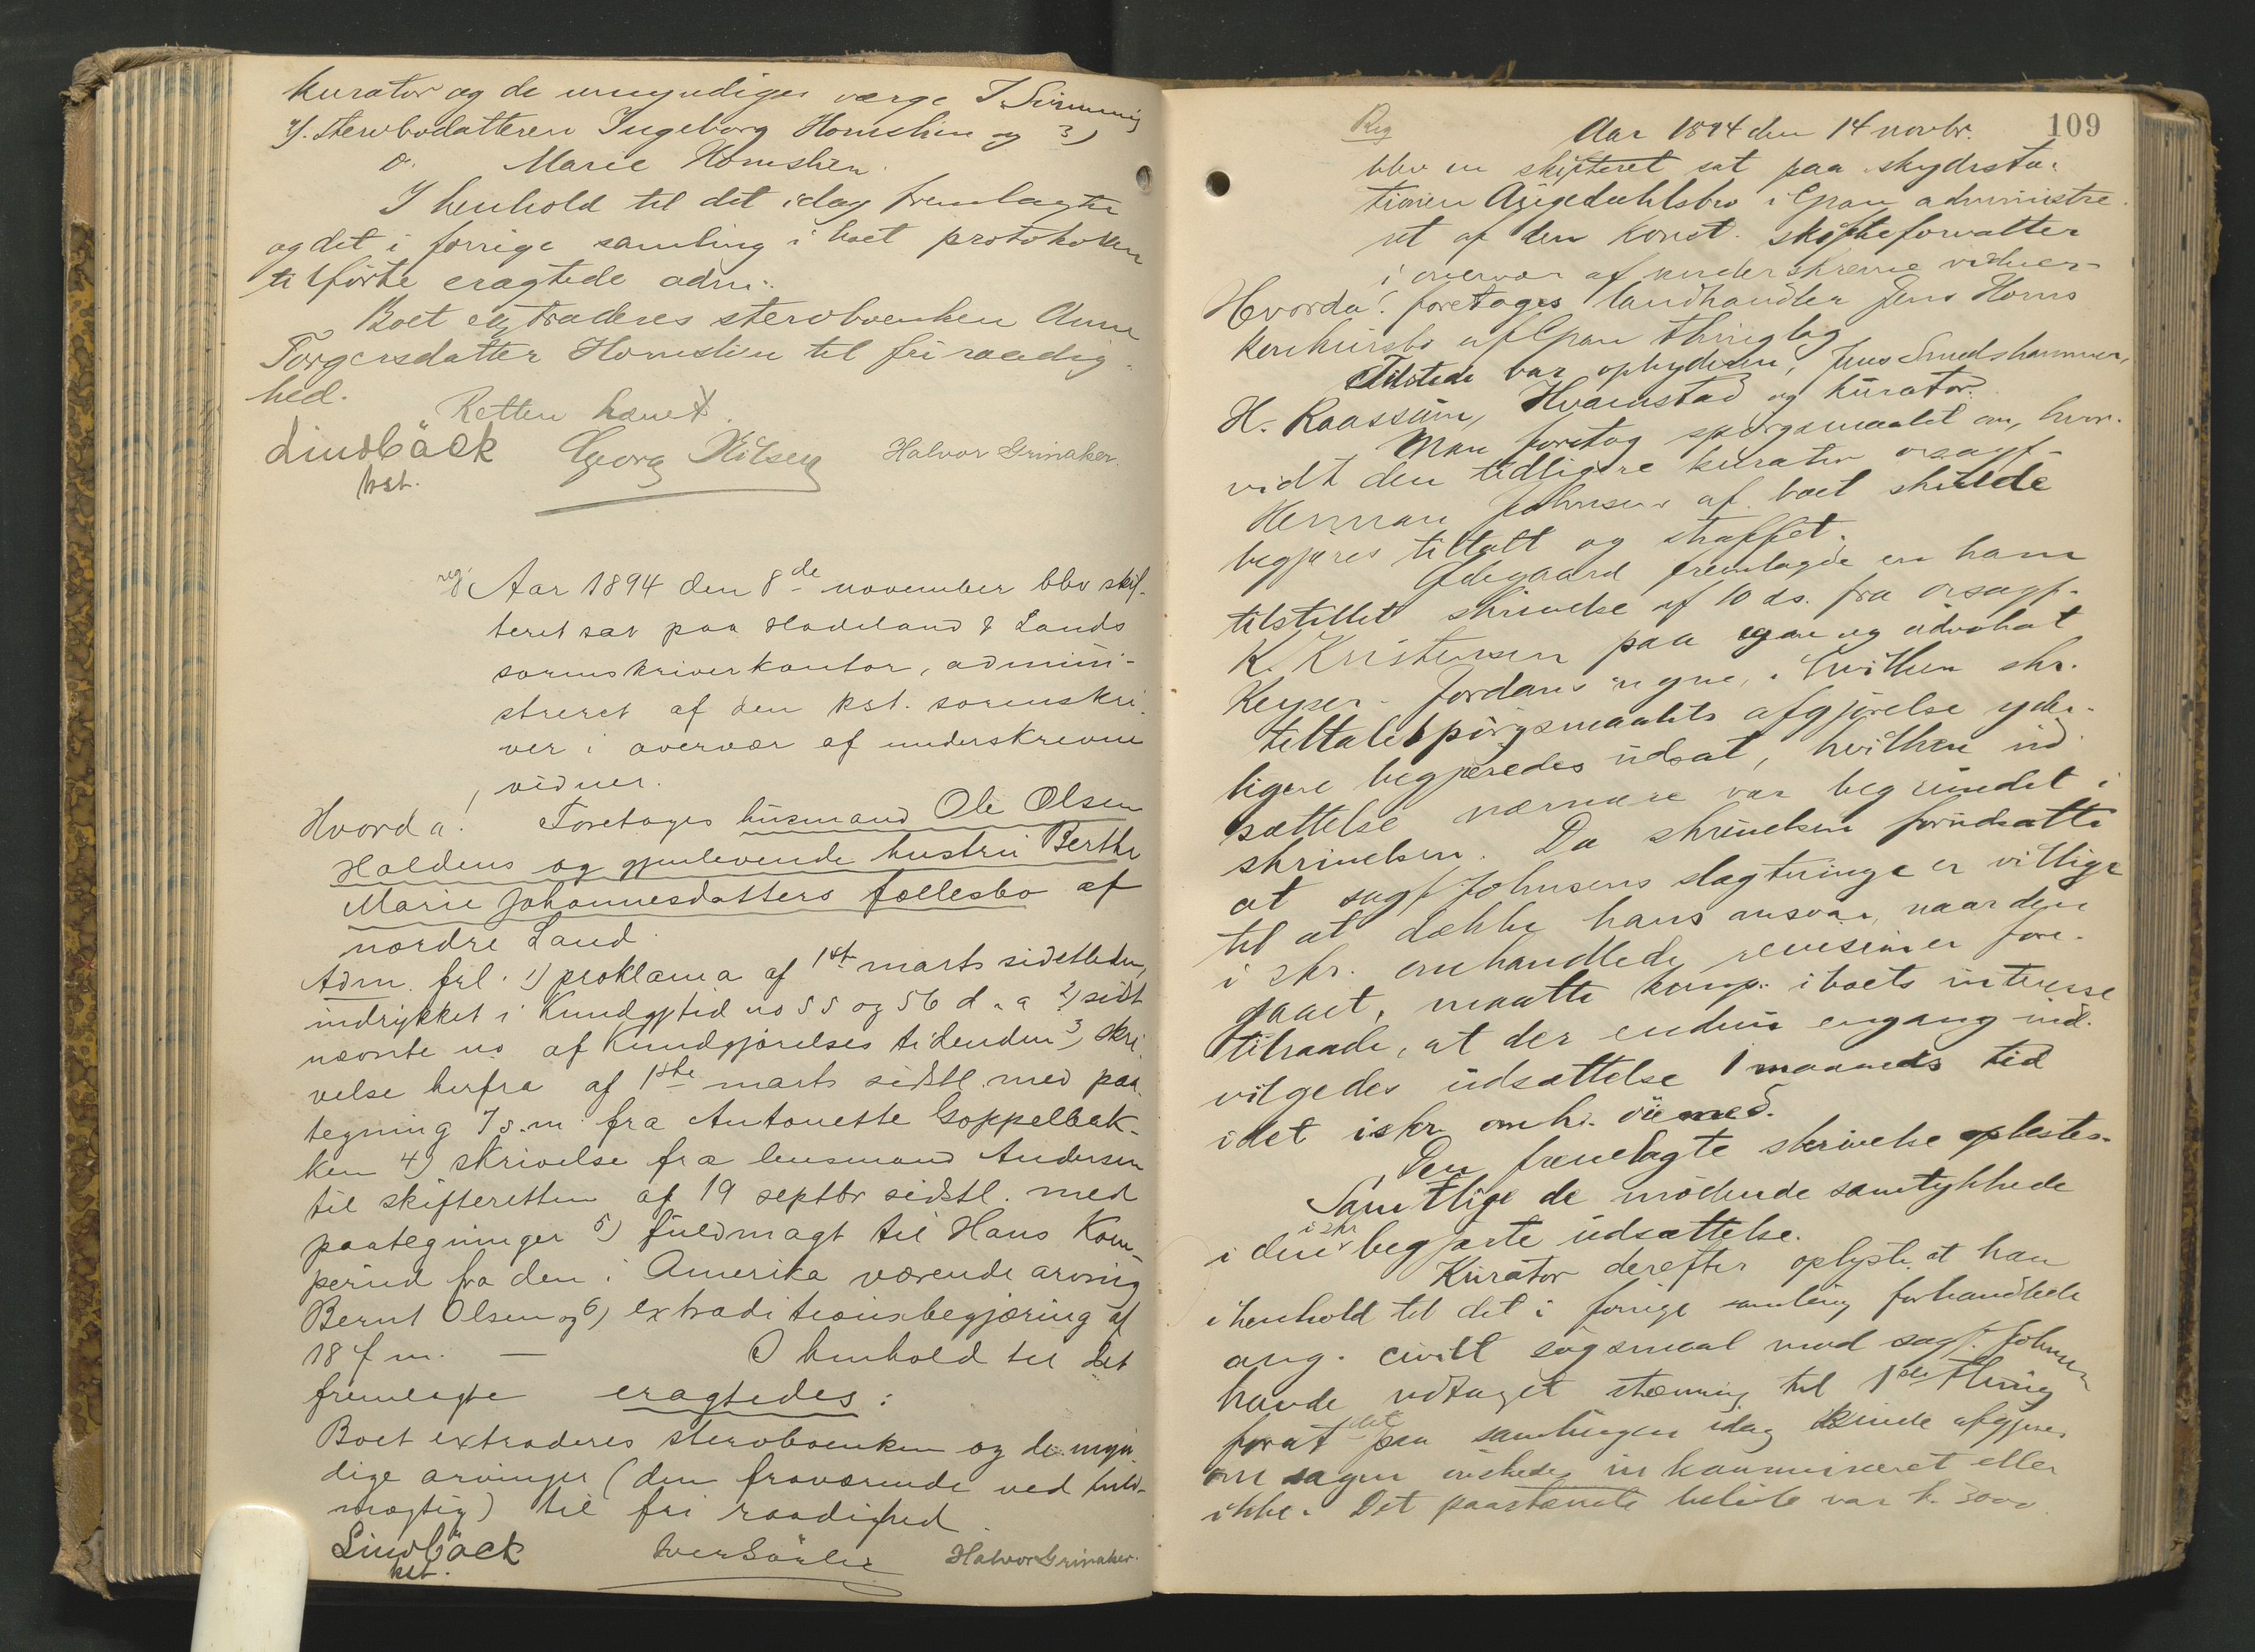 kurator og de umyndiges værge
2/. Stervbodatteren Ingeborg Homslien og 3)
D. Marie Homslien.
I henhold til det idag fremlagte
og det i forrige samling i boet protokollen
tilførte eragtede adm.:
Boet extraderes stervboenken Anne
Torgersdatter Homslien til fri raadig-
hed.
Retten hævet.
Lindbäck Georg Nilsen Halvor Grinaker.
kst.
reg. Aar 1894 den 8de november blev skif-
teret sat paa Hadeland & Lands
sorenskriverkontor, admini-
streret af den kst. sorenskri-
ver i overvær af underskrevne
vidner.
Hvorda! Foretages husmand Ole Olsen
Haldens og gjenlevende hustru Berthe
Marie Johannesdatters fællesbo af
nordre Land.
Adm. frl. 1) proklama af 1ste marts sidstleden,
indrykket i Kundgjtid no 55 og 56 d. a 2) sidst
nævnte no af Kundgjørelsestidenden 3) skri-
velse herfra af 1ste marts sidstl. med paa-
tegning 7 s.m. fra Antonette Goppelbak-
ken 4) skrivelse fra lensmand Andersen
til skifteretten af 19 septbr sidstl. med
paategninger 5) fuldmagt til Hans Kom-
perud fra den i Amerika værende arving
Bernt Olsen og 6) extraditionsbegjæring af
18 f m. — I henhold til det
fremlagte eragtedes:
Boet extraderes stervboenken og de myn-
dige arvinger (den fraværende ved fuld-
mægtig) til fri raadighed.
Lindbäck Halvor Grinaker.
kst.
Reg Aar 1894 den 14 novbr. 109
blev en skifteret sat paa skydssta-
tionen Augedahlsbro i Gran administre-
ret af den konst. skifteforvalter
i overvær af underskrevne vidner
Hvorda! foretages landhandler Jens Horns
konkursbo af Gran thinglag
Tilstede var opbyderen, Jens Smedshammer,
H. Raassum, Hvamstad og kurator.
Man foretog spørgsmaalet om, hvor-
vidt den tidligere kurator orsagf.
Herman Johnsen af boet skulde
begjæres tiltalt og straffet.
Ødegaard fremlagde en ham
tilstillet skrivelse af 10 ds. fra orsagf.
K. Kristensen paa egne og advokat
Keyser-Jordans vegne, i hvilken skr.
tiltalespørgsmaalets afgjørelse yder-
ligere begjæredes udsat, hvilken ud-
sættelse nærmere var begrundet i
skrivelsen. Da skrivelsen forudsatte
at sagf Johnsens slægtninge er villige
til at dække hans ansvar, naar den
i skr. omhandlede revision er fore-
gaaet, maatte komp. i boets interesse
tilraade, at der endnu engang ind-
vilgedes udsættelse 1 maaneds tid
i det i skr. omh. øiemed.
Den fremlagte skrivelse oplæstes.
Samtlige de mødende samtykkede
i den i skr begjærte udsættelse.
Kurator derefter oplyste, at han
i henhold til det i forrige samling forhandlede
ang. civilt søgsmaal mod sagf. Johnsen
havde udtaget stævning til 1ste thing
forat det paa samlingen idag kunde afgjøres
om sagen ønskedes inkammineret eller
ikke. Det paastævnte beløb var k. 3000